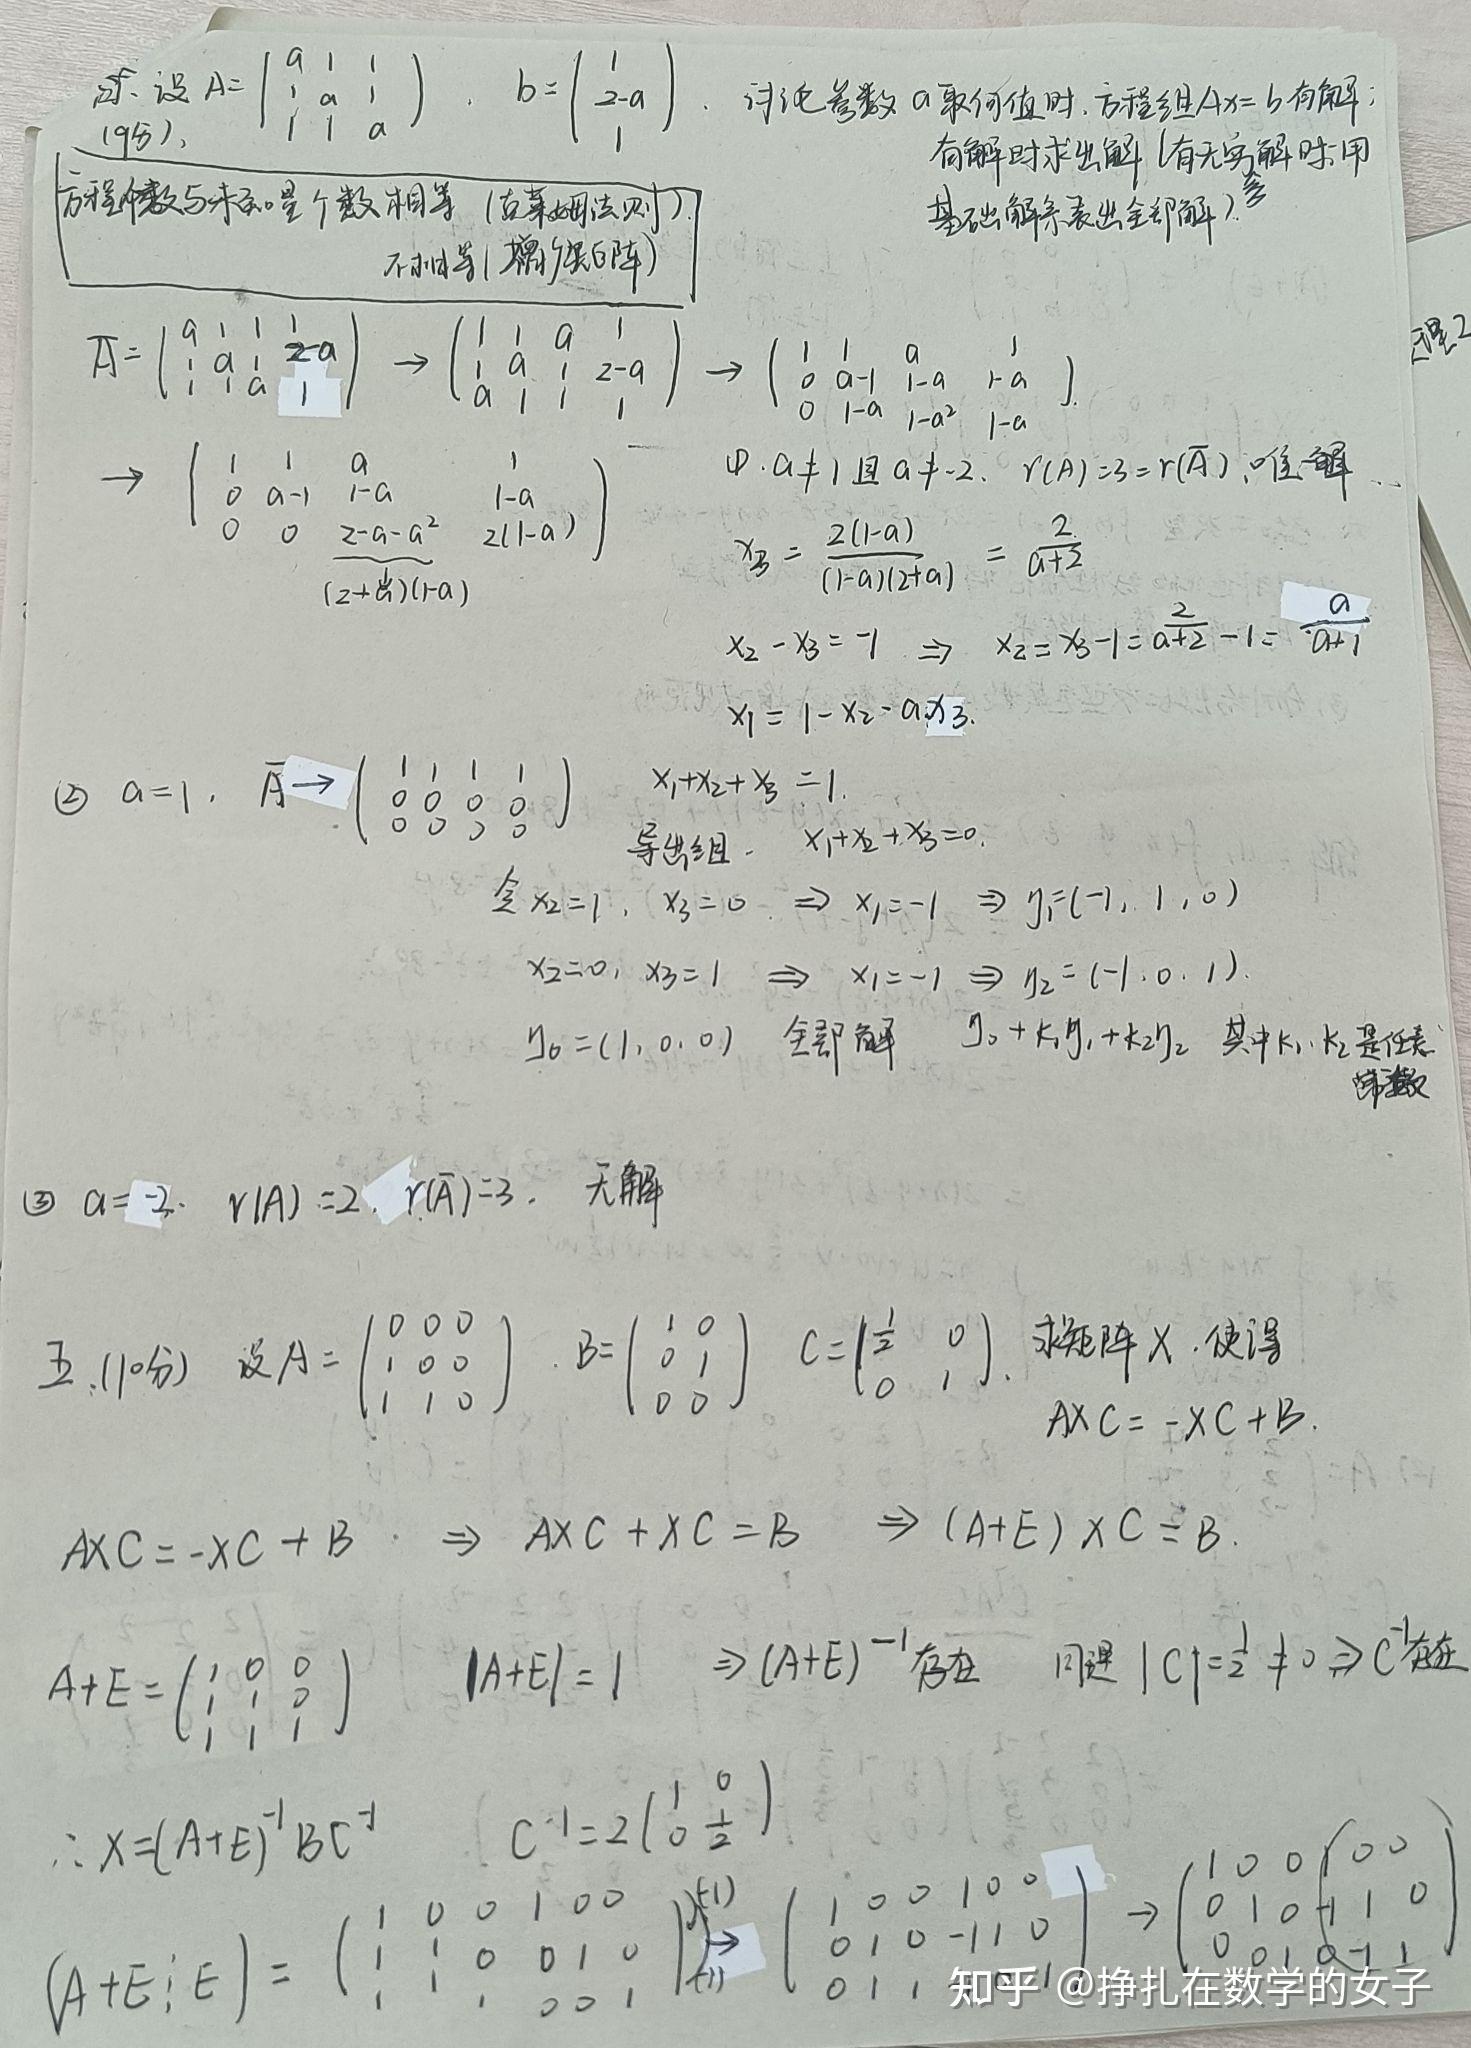 设 A= ( a 1 1 ; 1 a 1 ; 1 1 a ) , b= ( 1 ; 2-a ; 1 ) . 讨论参数 a 取何值时, 方程组 Ax=b 有解;
(9分),
有解时求出解 (有无穷解时, 用
基础解系表出全部解).
方程个数与未知量个数相等 (克莱姆法则).
不相等 (增广矩阵)
Ā= ( a 1 1 1 ; 1 a 1 2-a ; 1 1 a 1 ) → ( 1 1 a 1 ; 1 a 1 2-a ; a 1 1 1 ) → ( 1 1 a 1 ; 0 a-1 1-a 1-a ; 0 1-a 1-a² 1-a ).
→ ( 1 1 a 1 ; 0 a-1 1-a 1-a ; 0 0 2-a-a² 2(1-a) )
(2+a)(1-a)
①. a≠1 且 a≠-2. r(A)=3=r(Ā), 唯一解
x₃ = 2(1-a)/(1-a)(2+a) = 2/a+2
x₂-x₃=-1 ⇒ x₂=x₃-1= 2/a+2 -1= a/a+1
x₁=1-x₂-ax₃.
② a=1, Ā→ ( 1 1 1 1 ; 0 0 0 0 ; 0 0 0 0 ) x₁+x₂+x₃=1.
导出组. x₁+x₂+x₃=0.
令 x₂=1, x₃=0 ⇒ x₁=-1 ⇒ η₁=(-1, 1, 0)
x₂=0, x₃=1 ⇒ x₁=-1 ⇒ η₂=(-1, 0, 1).
η₀=(1, 0, 0) 全部解 η₀+k₁η₁+k₂η₂ 其中k₁, k₂是任意
常数
③ a=-2. r(A)=2, r(Ā)=3. 无解
五.(10分) 设A= ( 0 0 0 ; 1 0 0 ; 1 1 0 ) , B= ( 1 0 ; 0 1 ; 0 0 ) C= ( 1/2 0 ; 0 1 ). 求矩阵 X, 使得
AXC=-XC+B.
AXC=-XC+B ⇒ AXC+XC=B ⇒ (A+E)XC=B.
A+E= ( 1 0 0 ; 1 1 0 ; 1 1 1 ) |A+E|=1 ⇒ (A+E)⁻¹存在 同理 |C|=1/2≠0 ⇒ C⁻¹存在
∴ X=(A+E)⁻¹BC⁻¹ C⁻¹=2( 1 0 ; 0 1/2 )
(A+E⋮E) = ( 1 0 0 1 0 0 ; 1 1 0 0 1 0 ; 1 1 1 0 0 1 ) (-1) (-1) → ( 1 0 0 1 0 0 ; 0 1 0 -1 1 0 ; 0 1 1 0 1 ) → ( 1 0 0 1 0 0 ; 0 1 0 -1 1 0 ; 0 0 1 0 -1 1 )
知乎 @挣扎在数学的女子